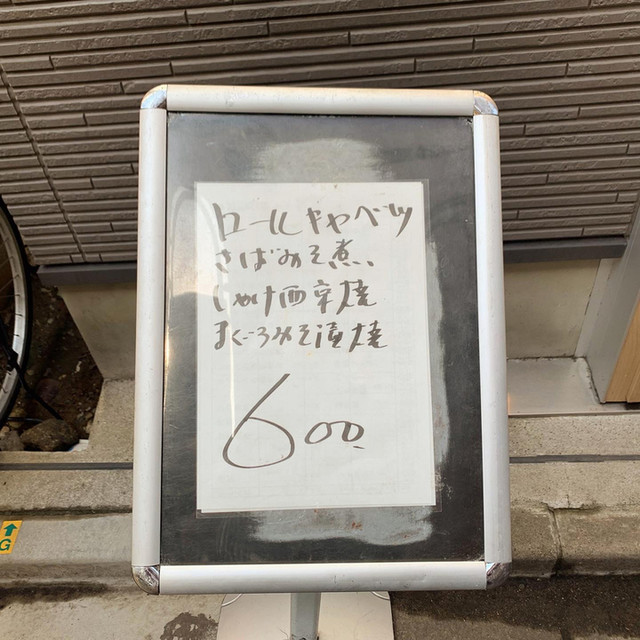 ロールキャベツ
さばみそ煮、
しゃけ西京焼
まぐろみそ漬焼
600
G